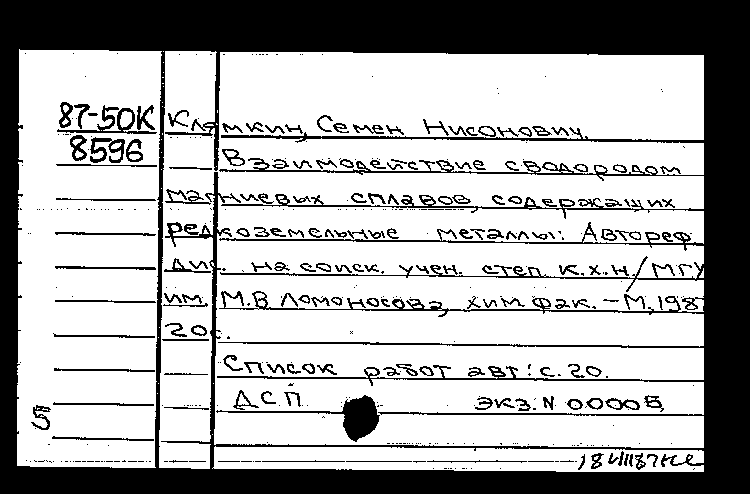 87-50К Клямкин, Семен Нисонович.
8596 Взаимодействие с водородом
магниевых сплавов, содержащих
редкоземельные металлы: Автореф.
дис. на соиск. учен. степ. к.х.н./МГУ
им. М.В Ломоносова, хим. фак. – М, 1987
20с.
Список работ авт: с. 20.
ДСП экз. N 00005
5